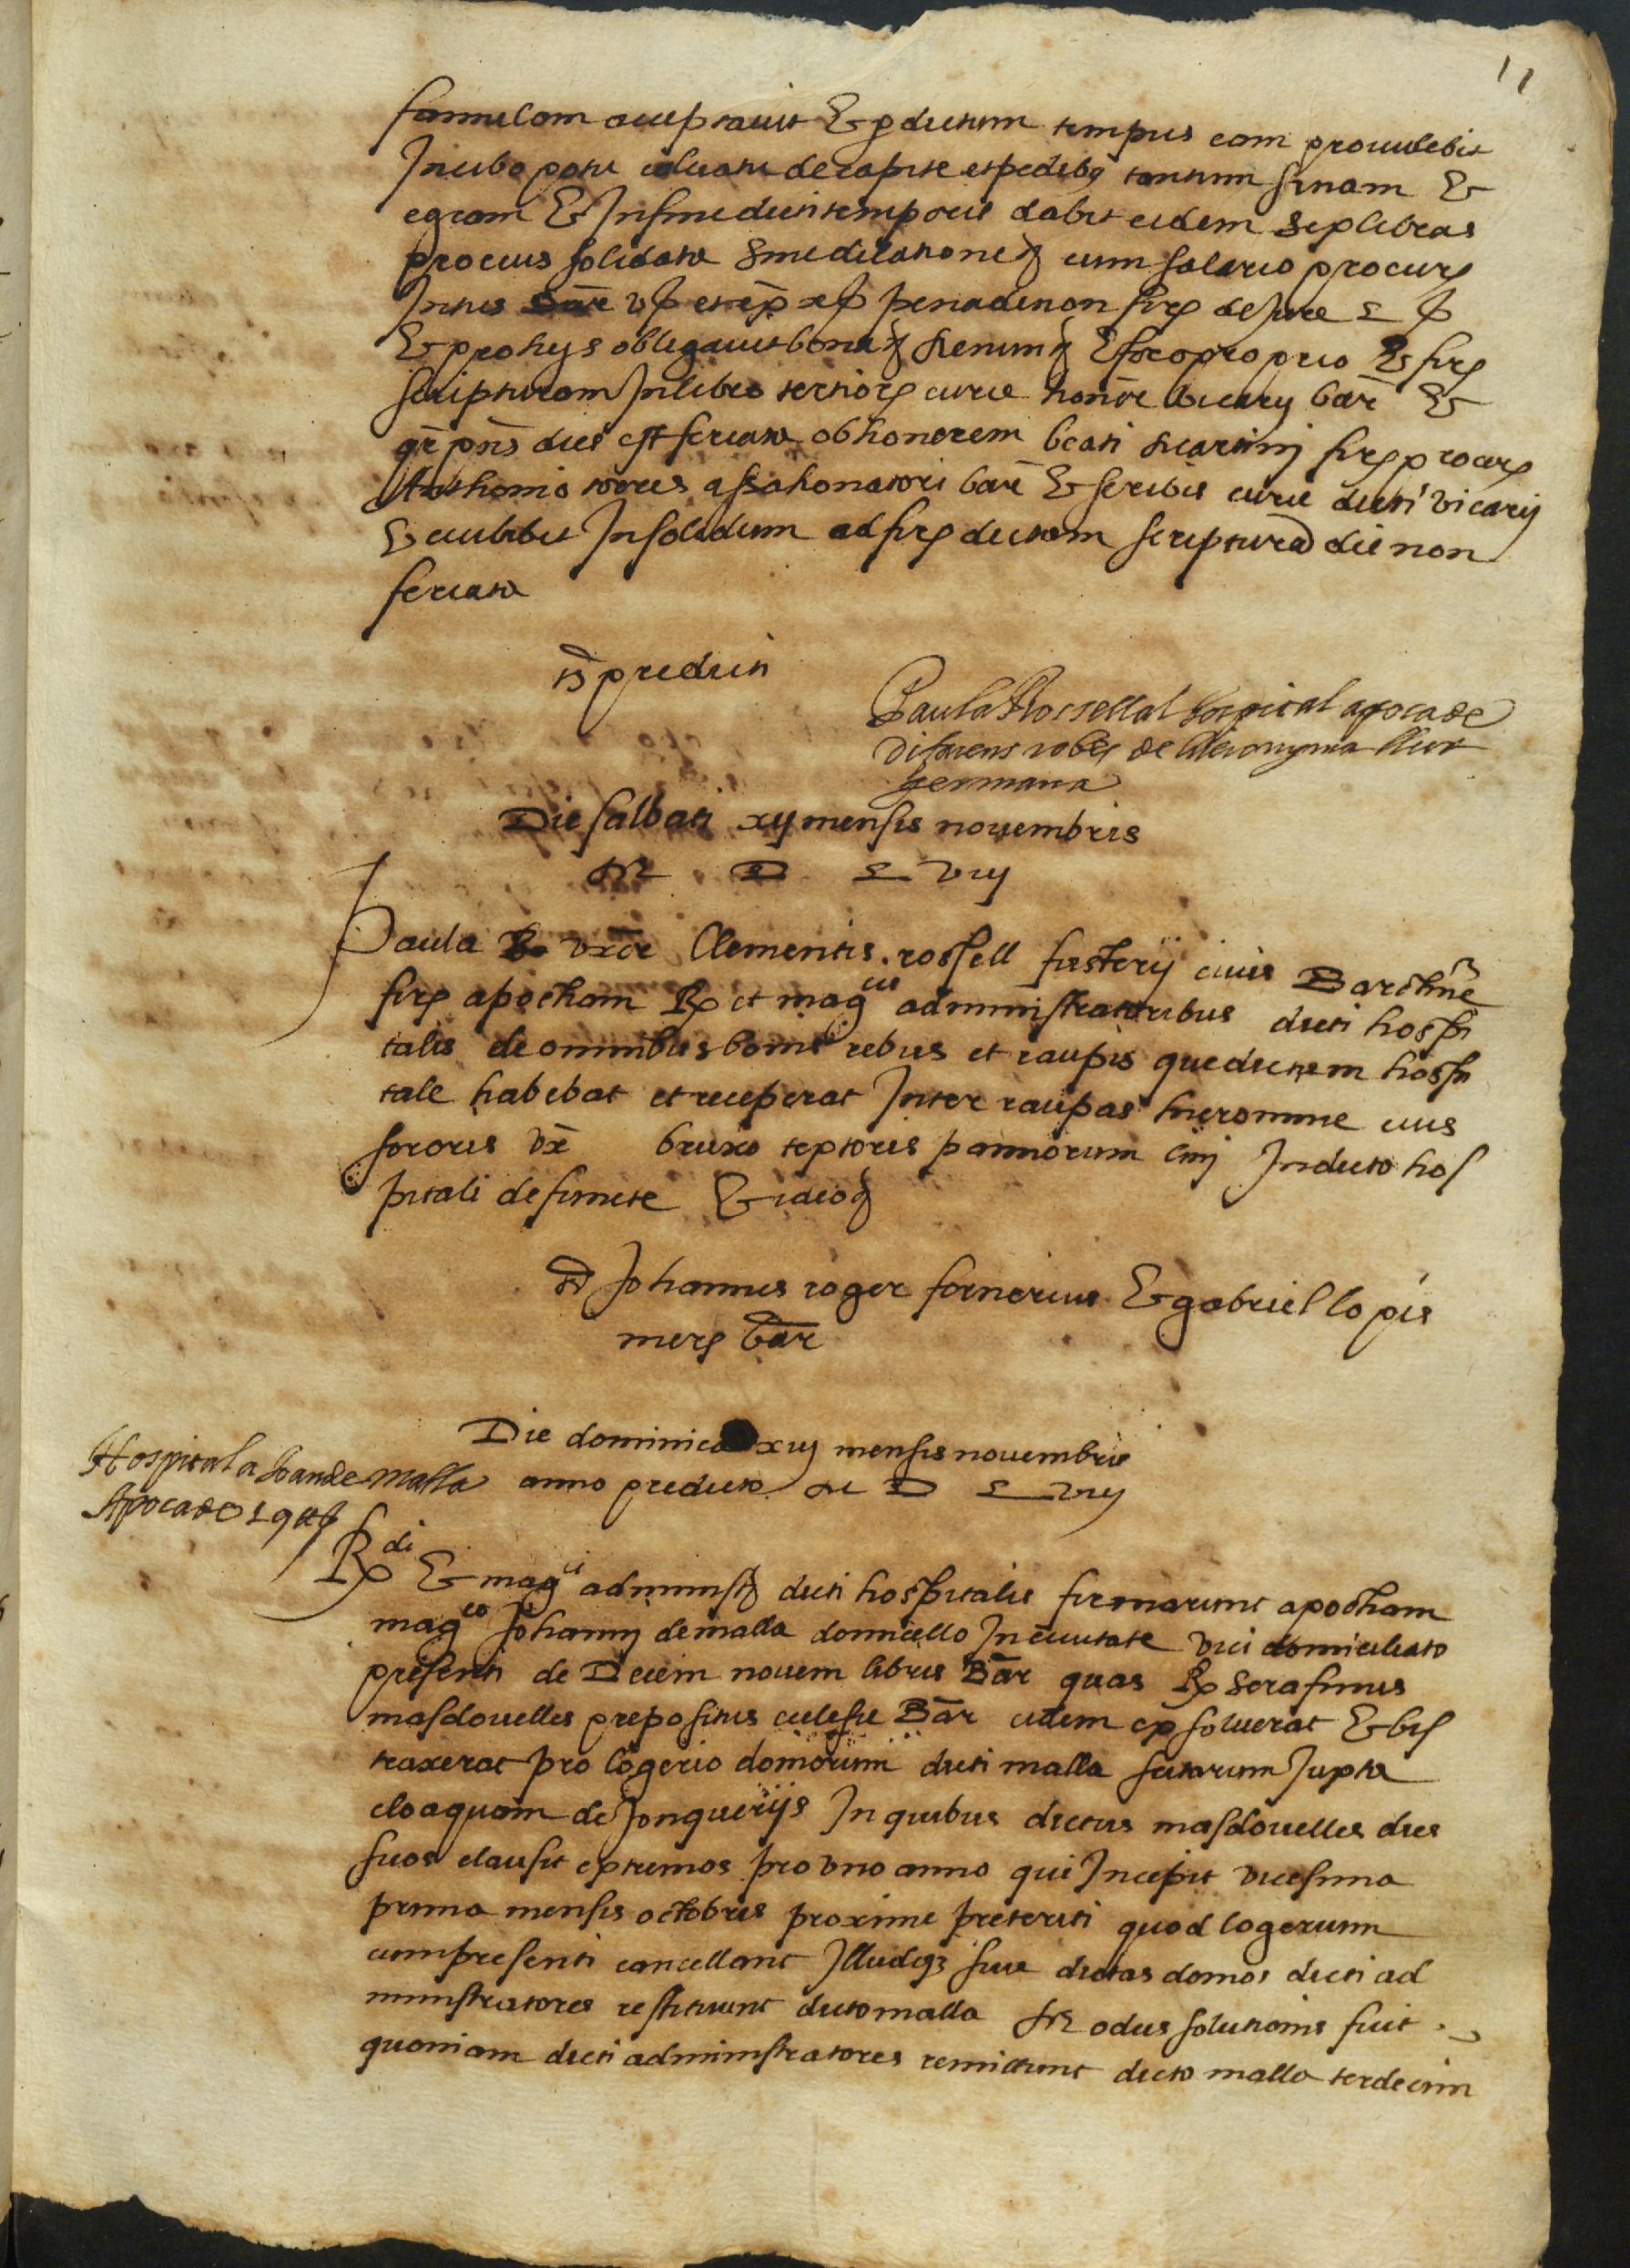 11
famulam acceptavit Et per dictum tempus eam providebit
In cibo potu calciatu de capite et pedibus tantum sanam Et
egram Et In fine dicti temporis dabit eidem sex libras
pro eius solidata sine dilatione cum salario procur
Intus bar v ß et ex x ß pena de non fir de iure
Et pro hys obligavit bona foro proprio Et fir
scripturam In libro tertior curie honor vicarij bar Et
qr pns dies est feriata ob honorem beati martinij fir procur
Anthonio torres assahonatori bar Et scribis curie dicti vicarij
Et cuilibet In solidum ad fir dictam scriptura die non
feriata
ts predicti
Paula Rossella l hospital apoca de
diferens robes de Hieronyma
germana
Die sabbati xij mensis novembris
M D L viij
Paula uxor Clementis rossell fusterij civis Barchne
fir apocham Rx et magcis administratoribus dicti hospi
talis de omnibus bonis rebus et raupis que dictum hospi
tale habebat et receperat Inter raupas hieronime eius
sororis ux bruxo textoris pannorum lini In dicto hos
pitali defuncte Et ideo
ts Johannes roger fornerius Et gabriel lopis
merc bar
Hospital a Joan de Malla
Apoca de
Die dominica xiij mensis novembris
anno predicto M D L viij
Rx di Et magci administ dicti hospitalis firmarunt apocham
magco Johanni de malla domicello In civitate vici domiciliato
presenti de Decem novem libris Bar quas Rx serafinus
masdovelles prepositus ecclesie Bar eidem exsolverat Et bis
traxerat pro logerio domorum dicti malla sitarum Juxta
cloaquam de Jonquerijs In quibus dictus masdovelles dies
suos clausit extremos pro uno anno qui Incepit vicesima
prima mensis octobris proxime preteriti quod logerium
cum presenti cancellant Illudque sive dictas domos dicti ad
ministratores restituunt dicto malla Modus solutionis fuit
quoniam dicti administratores remittunt dicto malla terdecim